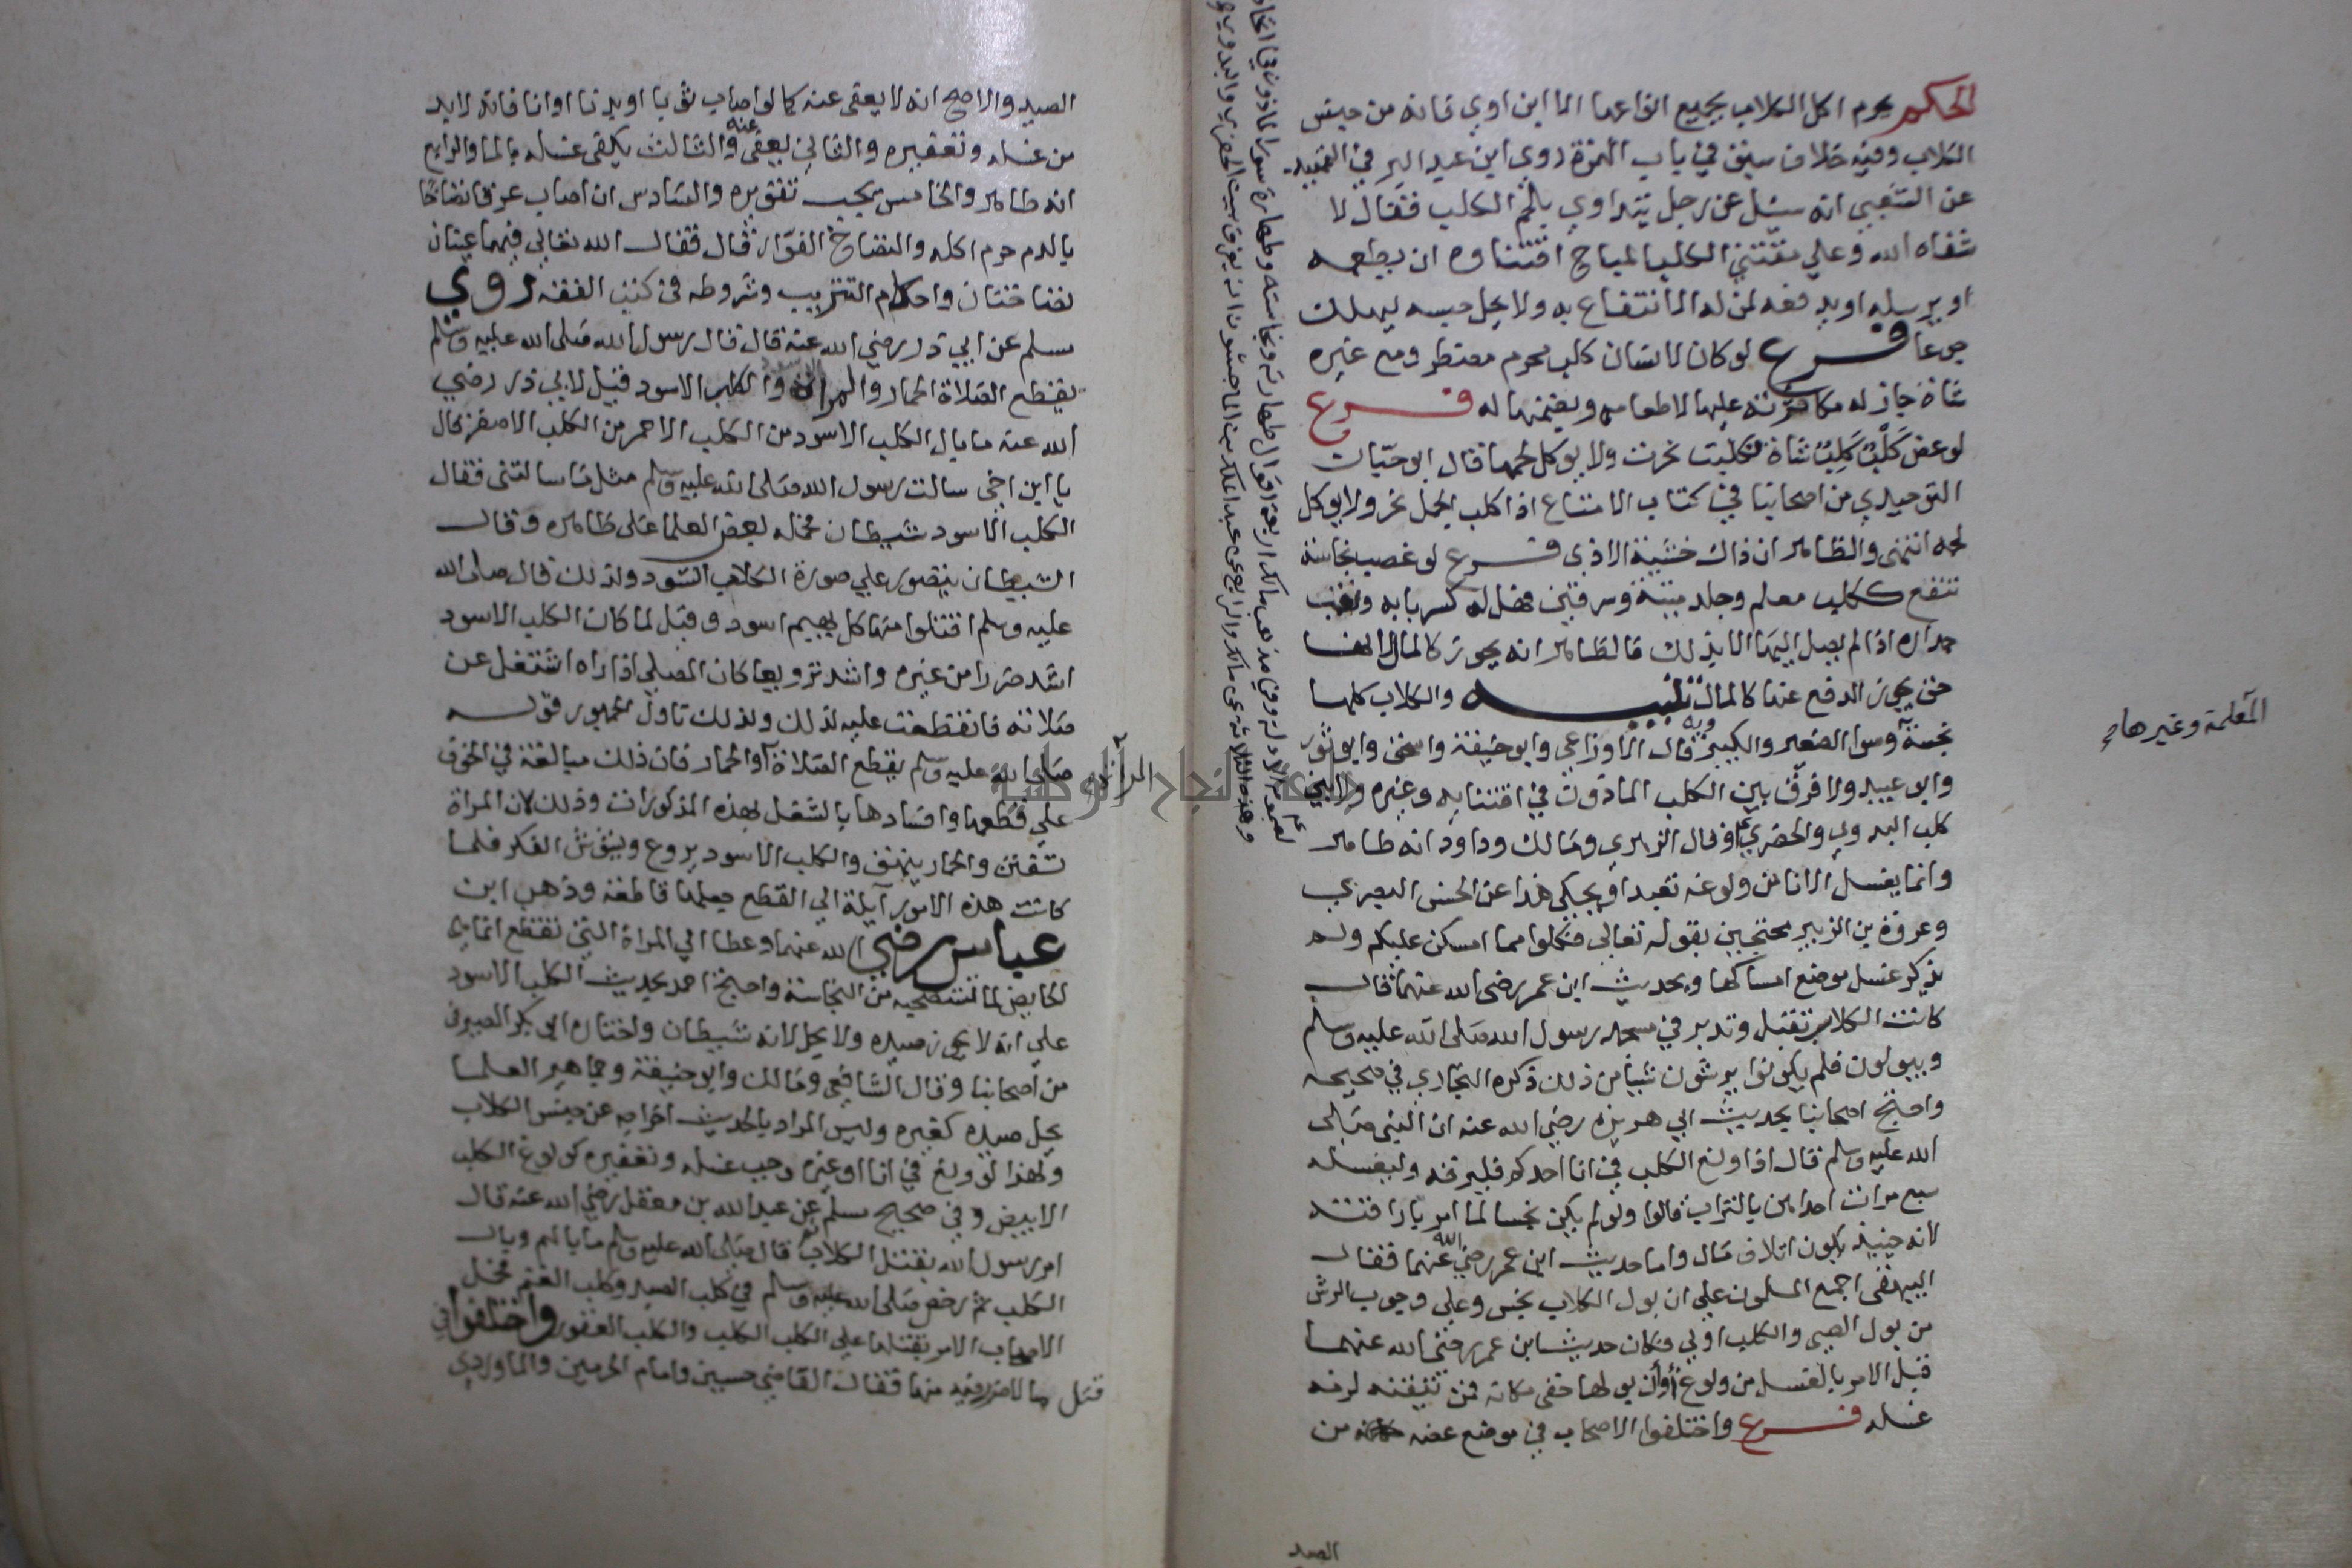 الحكم يحرم اكل الكلاب بجميع انواعها الا ابن اوى فانه من جنس
الكلاب وفيه خلاف سبق في باب الهمزة روى ابن عبد البر في التمهيد
عن الشعبي انه سئل عن رجل يتداوي بلحم الكلب فقال لا
شفاه الله وعلي مقتني الكلب المباح اقتناوه ان يطعمه
او يرسله او يدفعه لمن له الانتفاع به ولا يحل حبسه ليهلك
جوعا فرع لو كان لانسان كلب محرم مضطر ومع غيره
شاة جاز له مكابرته عليها لاطعامه ويضمنها له فرع
لو عض كَلْبٌ كَلِبٌ شاة فكلبت نحرت ولا يوكل لحمها قال ابو حيان
التوحيدي من اصحابنا في كتاب الامتاع اذا كلب الجمل نحر ولا يوكل
لحمه انتهى والظاهر ان ذاك خشية الاذى فرع لو غصب نجاسة
تنفع ككلب معلم وجلد ميتة وسرقين فهل له كسر بابه ونقب
جداره اذا لم يصل اليها الا بذلك فالظاهر انه يجوز كالمال
حتى يجوز الدفع عنها كالمال تنبيه والكلاب كلها
نجسة وسوا الصغير والكبير وبه قال الاوزاعي وابو حنيفة واسحق وابو ثور
وابو عبيد ولا فرق بين الكلب الماذون في اقتنايه وغيره ولا بين
كلب البدوي والحضري وقال الزهري ومالك وداود انه طاهر
وانما يغسل الانا من ولوغه تعبدا ويحكى هذا عن الحسن البصري
وعروة بن الزبير محتجين بقوله تعالى فكلوا مما امسكن عليكم ولم
يذكر غسل موضع امساكها وبحديث ابن عمر رضى الله عنهما قال
كانت الكلاب تقبل وتدبر في مسجد رسول الله صلى الله عليه وسلم
ويبولون فلم يكونوا يرشون شيئا من ذلك ذكره البخاري في صحيحه
واحتج اصحابنا بحديث ابي هريرة رضي الله عنه ان النبي صلى
الله عليه وسلم قال اذا ولغ الكلب في انا احدكم فليرقه وليغسله
سبع مرات احداهن بالتراب قالوا ولو لم يكن نجسا لما امر باراقته
لانه حينيذ يكون اتلاف مال واما حديث ابن عمر رضي الله عنهما فقال
البيهقى اجمع المسلمون علي ان بول الكلاب نجس وعلي وجوب الرش
من بول الصبي والكلب اولي فكان حديث ابن عمر رضي الله عنهما
قبل الامر بالغسل من ولوغ او ان بولها خفى مكانه فمن تيقنه لزمه
غسله فرع واختلفوا الاصحاب في موضع عضه من
الصيد
المعلمة وغيرها
الصيد والاصح انه لا يعفى عنه كما لو اصاب ثوبا او بدنا او انا فانه لا بد
من غسله وتعفيره والثاني يعفى عنه والثالث يكفي غسله بالما والرابع
انه طاهر والخامس يجب تقويره والسادس ان اصاب عرقا نضاخا
بالدم حرم اكله والنضاخ الفوار قال الله تعالى فيهما عينان
نضاختان واحكام التتريب وشروطه في كتب الفقه روي
مسلم عن ابي ذر رضي الله عنه قال قال رسول الله صلى الله عليه وسلم
يقطع الصلاة الحمار والمراة والكلب الاسود قيل لابي ذر رضي
الله عنه ما بال الكلب الاسود من الكلب الاحمر من الكلب الاصفر قال
يا ابن اخي سالت رسول الله صلى الله عليه وسلم مثل ما سالتنى فقال
الكلب الاسود شيطان فحمله بعض العلما على ظاهره وقال
الشيطان يتصور علي صورة الكلاب السود ولذلك قال صلى الله
عليه وسلم اقتلوا منها كل بهيم اسود وقيل لما كان الكلب الاسود
اشد ضررا من غيره واشد ترويعا كان المصلي اذا راه اشتغل عن
صلاته فانقطعت عليه لذلك ولذلك تاول الجمهور قوله
صلى الله عليه وسلم يقطع الصلاة المراة والحمار فان ذلك مبالغة في الخوف
علي قطعها وافسادها بالشغل بهذه المذكورات وذلك لان المراة
تفتن والحمار ينهق والكلب الاسود يروع ويشوش الفكر فلما
كانت هذه الامور آيلة الي القطع جعلها قاطعة وذهب ابن
عباس رضي الله عنهما وعطا الي المراة التي تقطع انما هي
الحايض لما تستصحبه من النجاسة واحتج احمد بحديث الكلب الاسود
علي انه لا يجوز صيده ولا يحل لانه شيطان واختاره ابو بكر الصيرفي
من اصحابنا وقال الشافعي ومالك وابو حنيفة وجماهير العلما
يحل صيده كغيره وليس المراد بالحديث اخراجه عن جنس الكلاب
ولهذا لو ولغ في انا او غيره وجب غسله وتعفيره كولوغ الكلب
الابيض وفي صحيح مسلم عن عبد الله بن مغفل رضي الله عنه قال
امر رسول الله بقتل الكلاب ثم قال صلى الله عليه وسلم ما بالهم وبال
الكلاب ثم رخص صلى الله عليه وسلم في كلب الصيد وكلب الغنم فحمل
الاصحاب الامر بقتلها علي الكلب الكلب والكلب العقور واختلفوا في
قتل ما لا ضرر فيه منها فقال القاضي حسين وامام الحرمين والماوردي